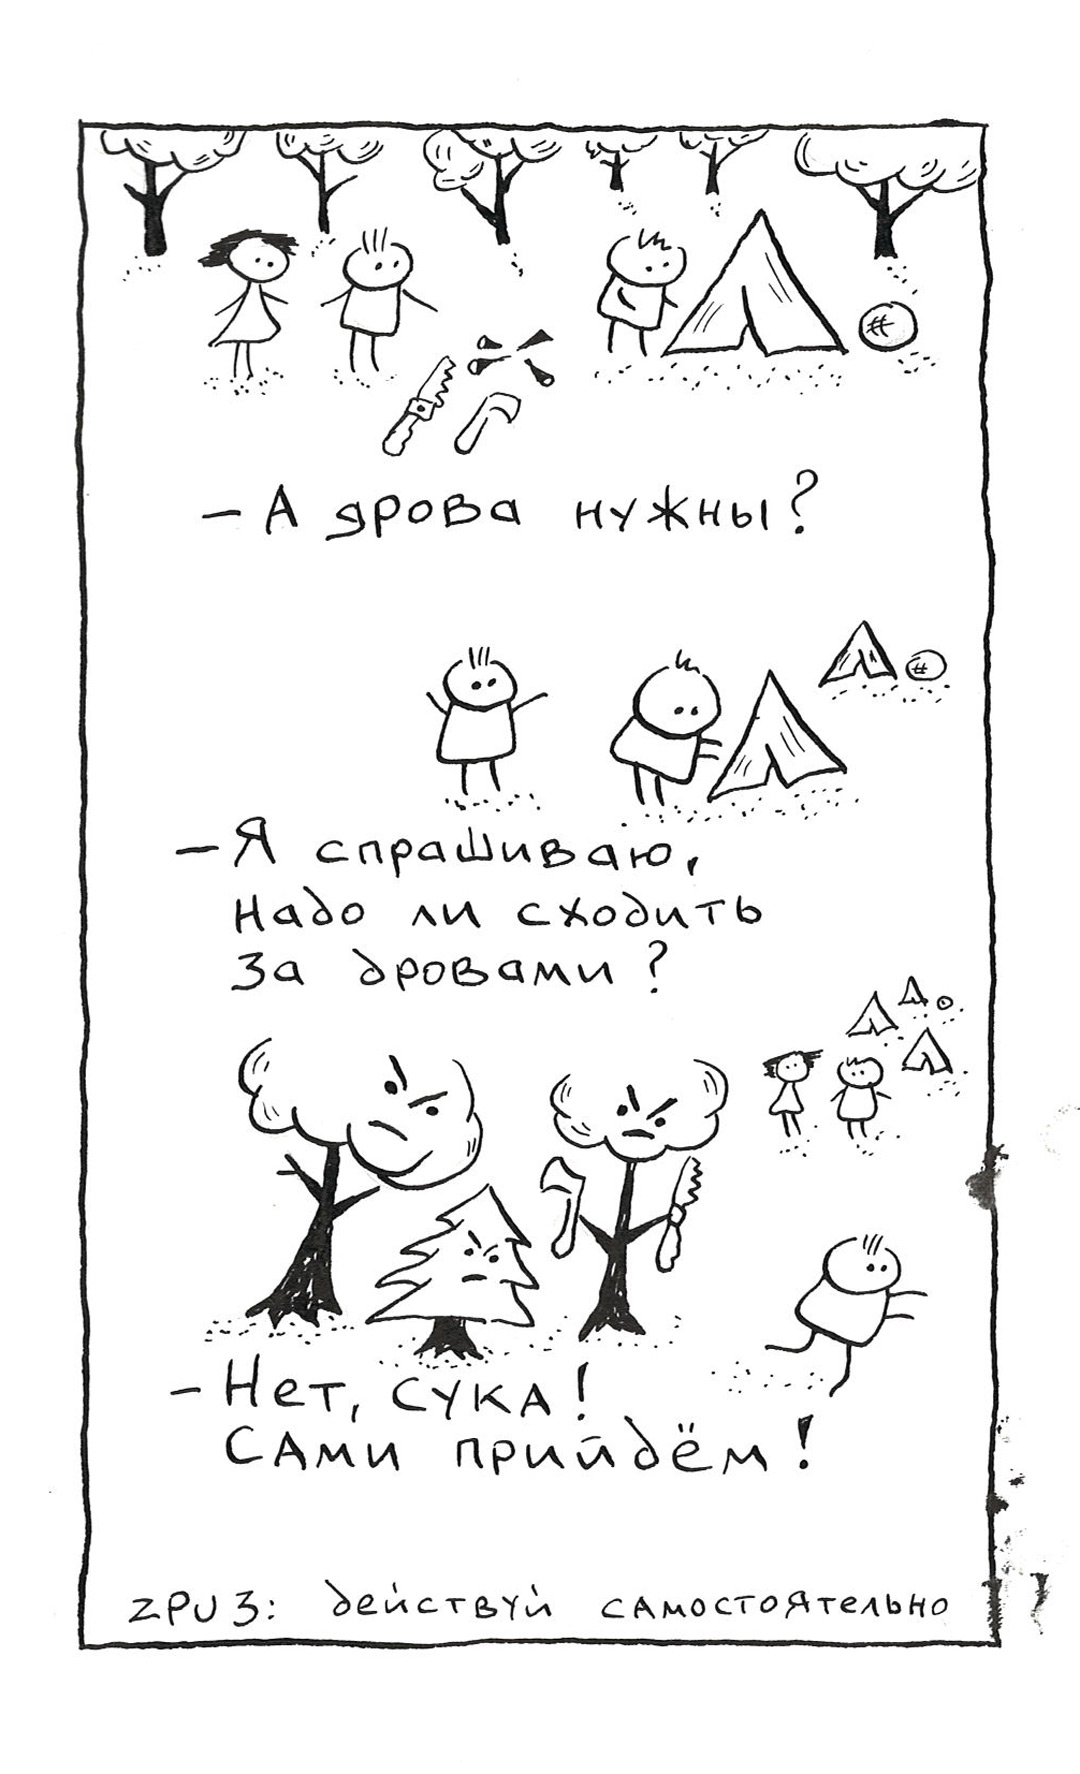 — А дрова нужны?
— Я спрашиваю,
надо ли сходить
за дровами?
— Нет, сука!
Сами прийдём!
ZPU 3: действуй самостоятельно